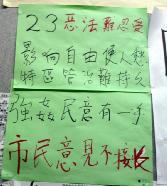 23惡法難忍受
影响自由使人愁
特區管治難持久
強姦民意有一手
市民意見不接